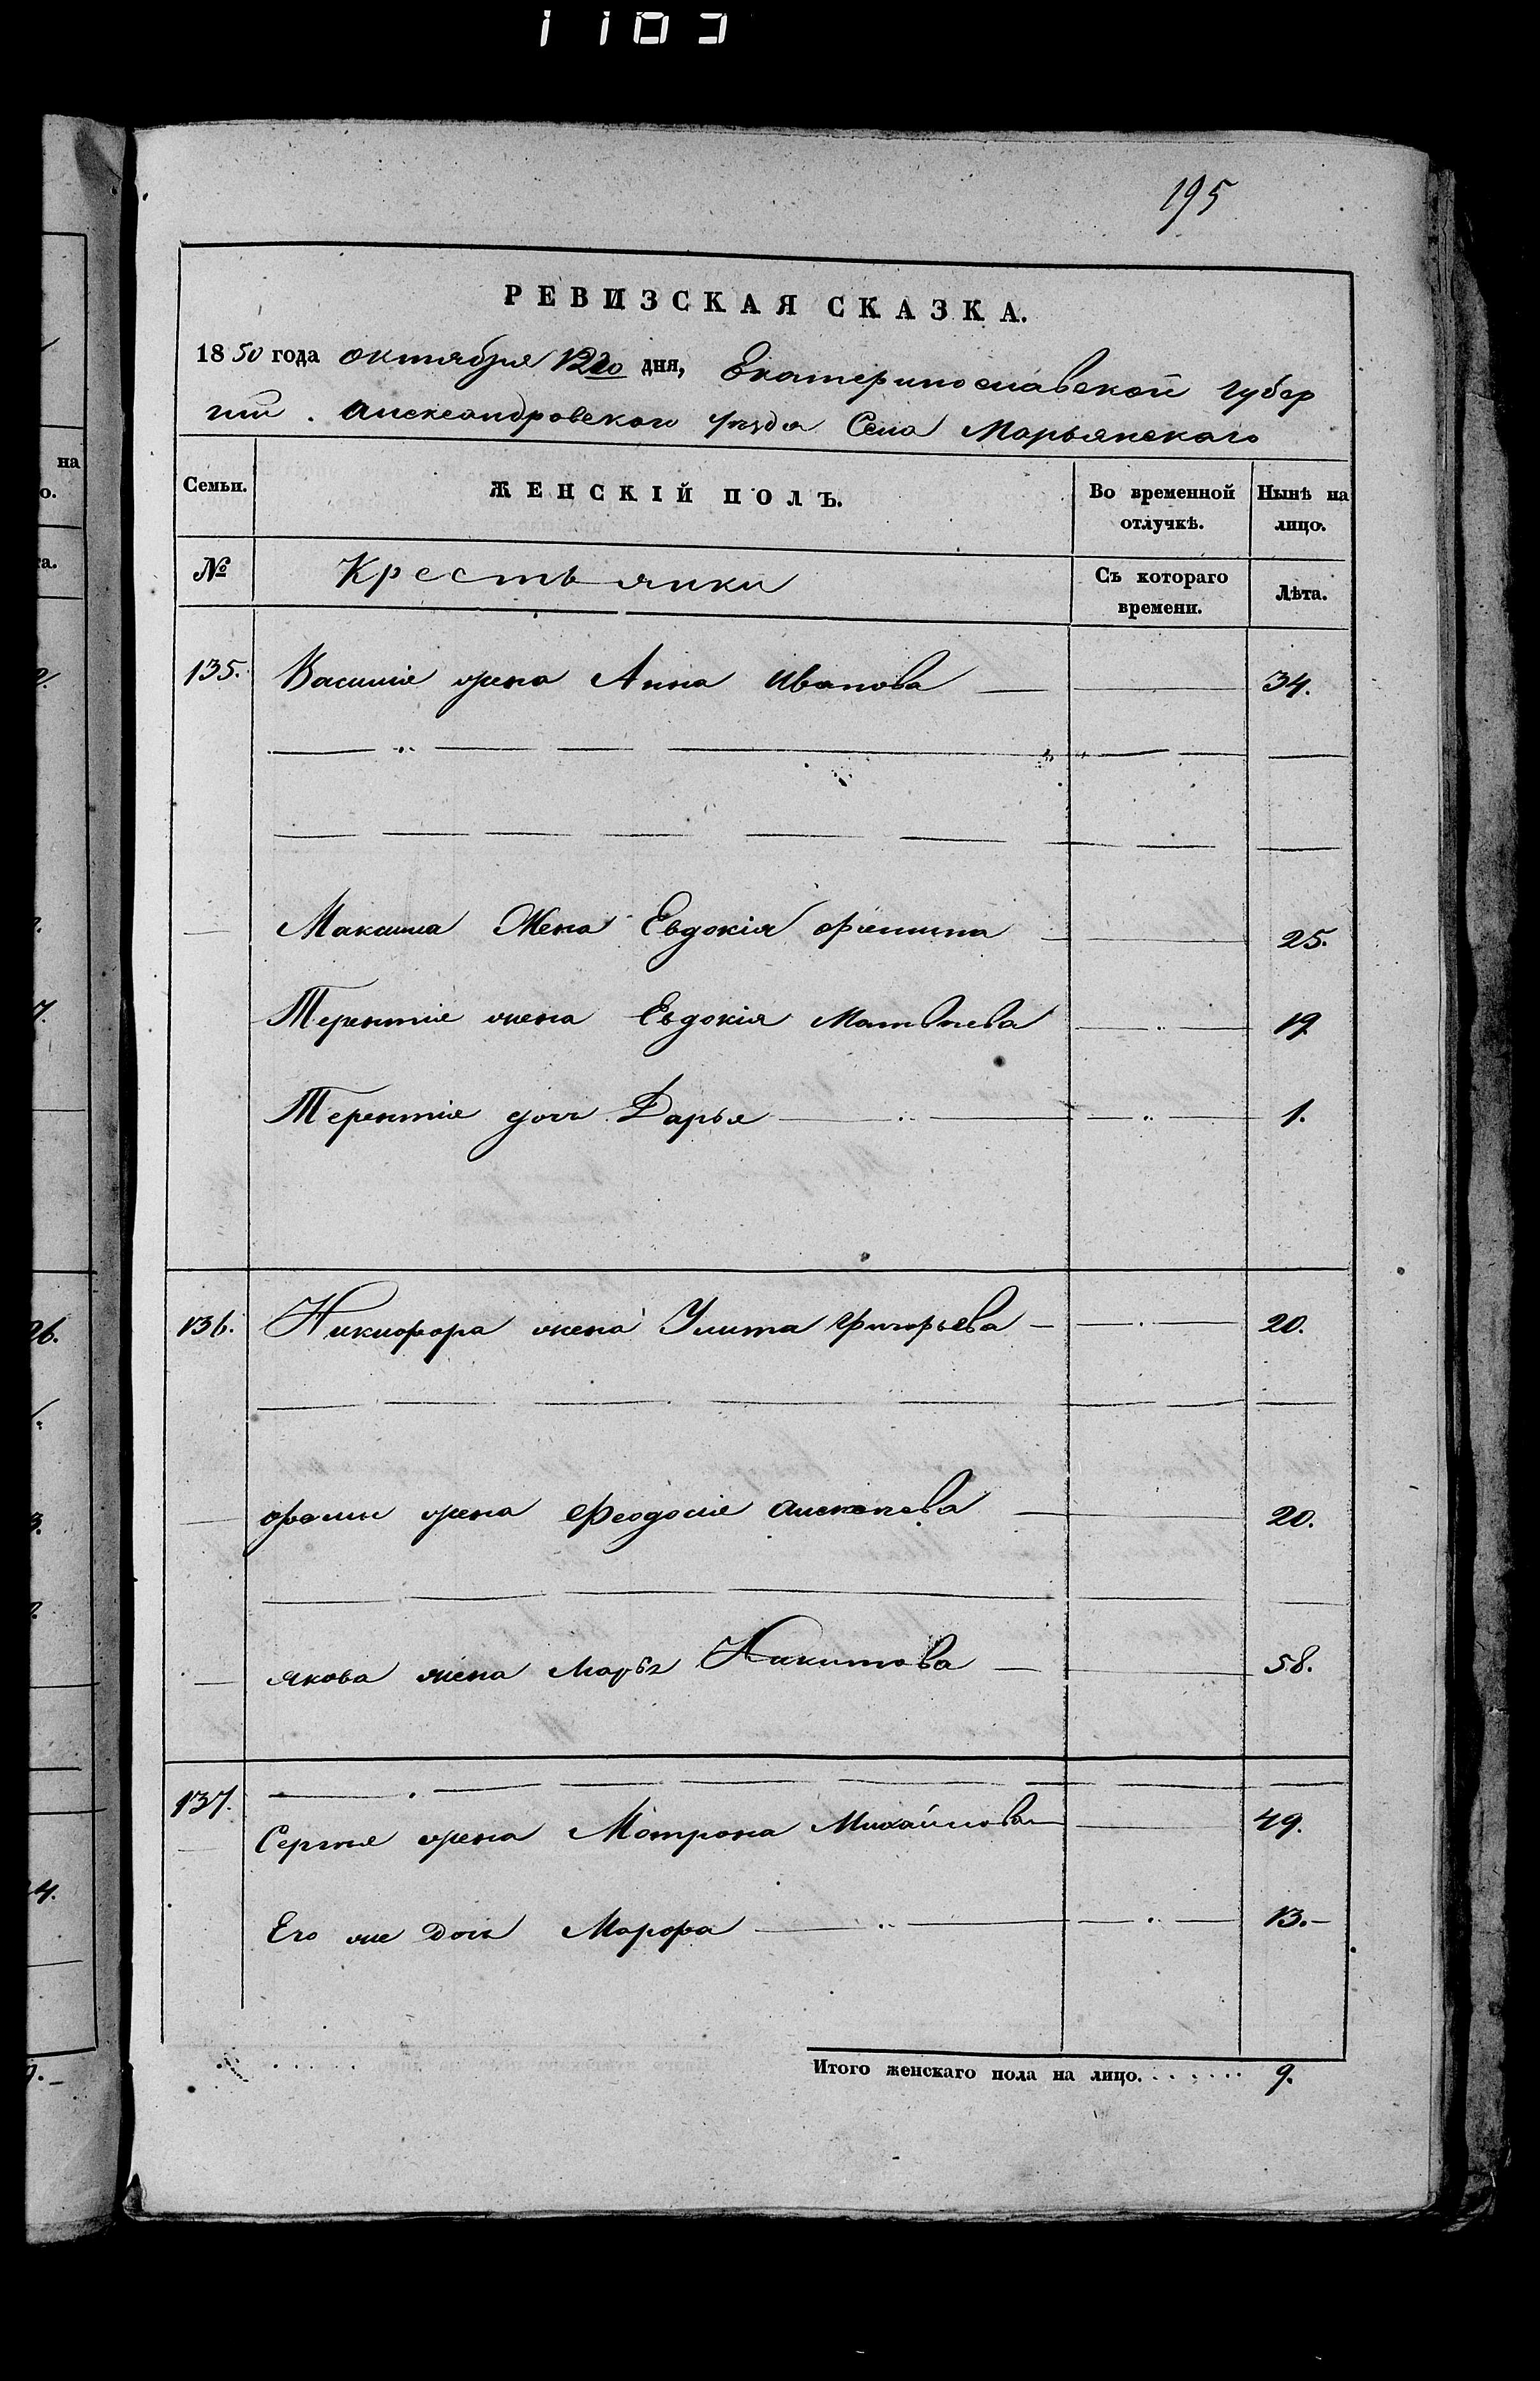 195
РЕВИЗСКАЯ СКАЗКА.
1850 года октября 12го дня, Екатеринославской губер
нии. Александровского уезда Села Марьянскаго
Семьи.
ЖЕНСКІЙ ПОЛЪ.
Во временной отлучкѣ.
Нынѣ на лицо.
№
Крестьянки
Съ котораго времени.
Лѣта.
135. Василия жена Анна Иванова 34.
Максима Жена Евдокія 25.
Терентия жена Евдокія Матвѣева 19
Терентия дочь Дарья 1.
136. Никифора жена Улита Григорьева 20.
Фомы жена Феодосия Алексѣева 20.
Якова жена Марья Никитова 58.
137.
Сергѣя жена Мотрона Михайлова 49.
Его же Дочь Марфа 13.
Итого женскаго пола на лицо. 9.